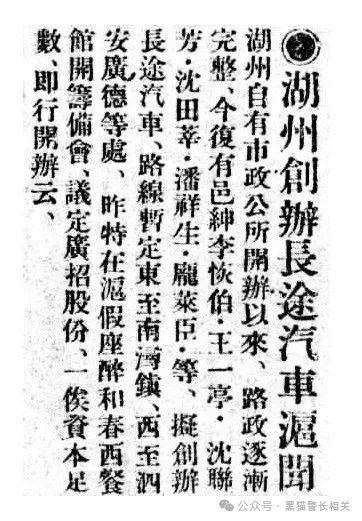 湖州創辦長途汽車滬聞
湖州自有市政公所開辦以來、路政逐漸
完整、今復有邑紳李恢伯·王一亭·沈聯
芳·沈田莘·潘祥生·龐萊臣·等、擬創辦
長途汽車、路線暫定東至南潯鎮、西至泗
安廣德等處、昨特在滬假座醉和春西餐
館開籌備會、議定廣招股份、一俟資本足
數、即行開辦云、
公众号·黑猫警长相关